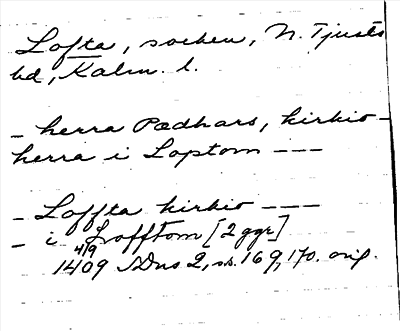 Lofta, socken, N. Tjusts
hd, Kalm. l.
- herra Pædhars, kirkio-
herra i Loptom ---
- Loffta kirkio ---
- i Lofftom [2 ggr]
4/9
1409 SDns 2, ss. 169, 170. orig.